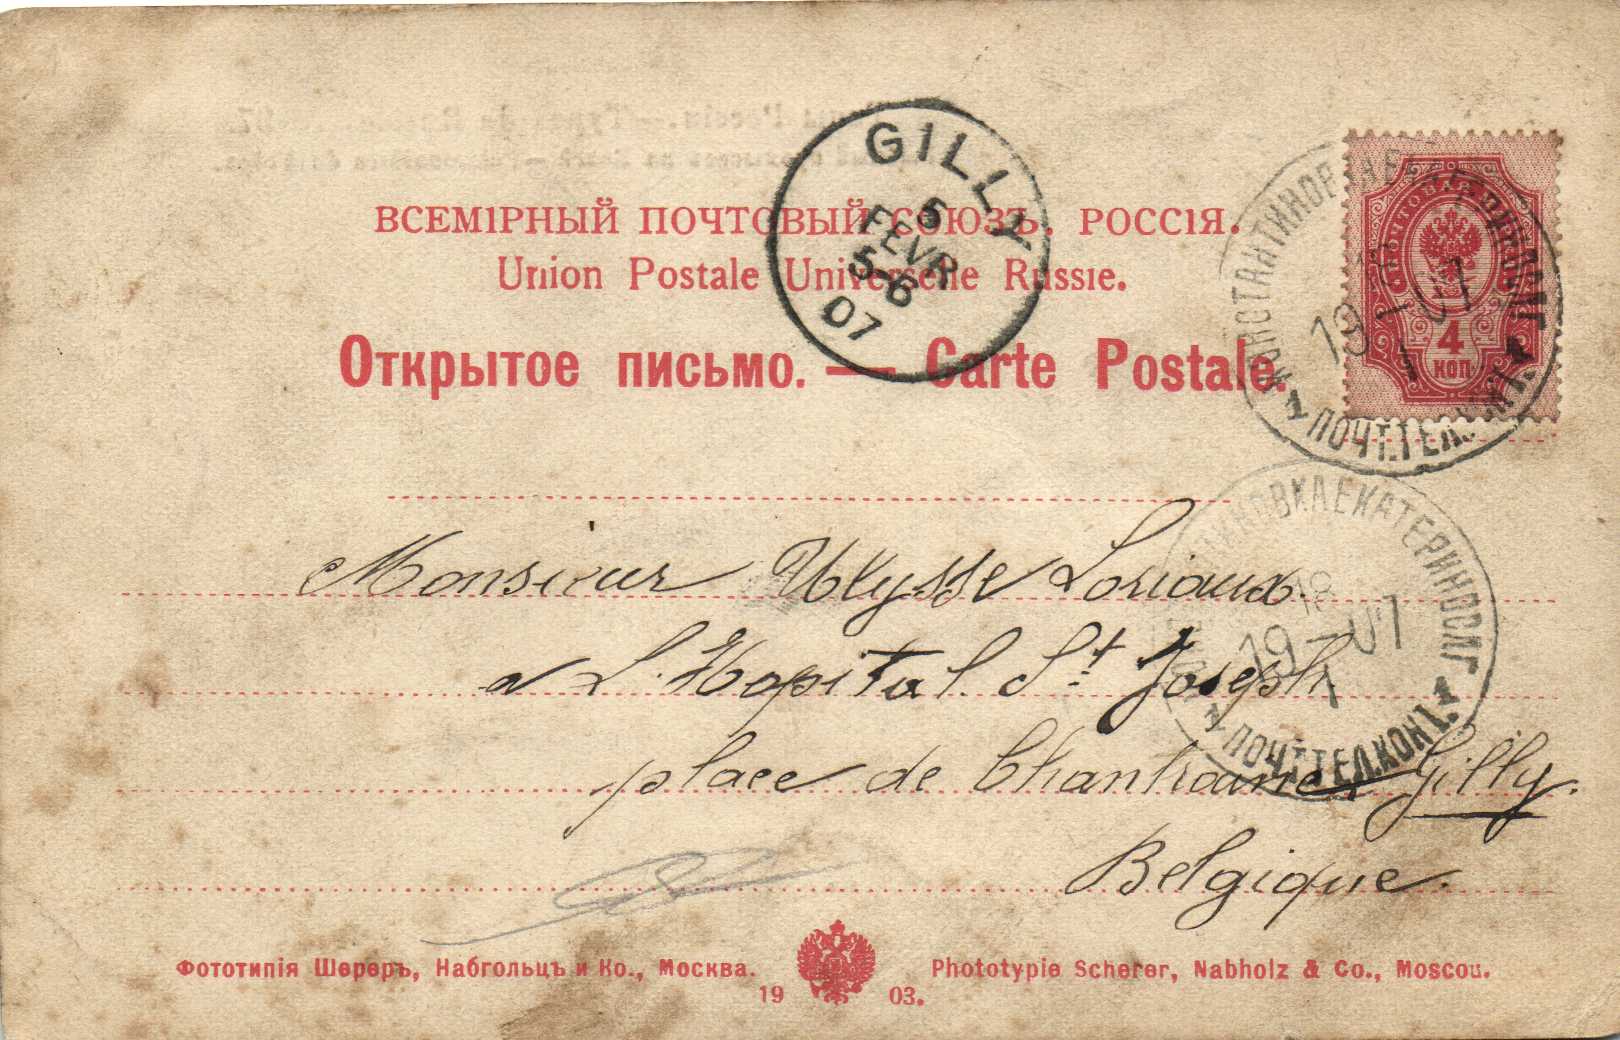 ВСЕМІРНЫЙ ПОЧТОВЫЙ СОЮЗЪ. РОССІЯ.
Union Postale Universelle Russie.
Открытое письмо. — Carte Postale.
GILLY
5
FEVR
5-6
07
4
КОП
19
1
07
1 ПОЧТ.ТЕЛ.КОН. 1
ЕКАТЕРИНОСЛГ
18
19-1-07
1 ПОЧТ.ТЕЛ.КОН. 1
Monsieur Ulysse Loriaux.
a L'Hopital. St. Joseph
place de Chantraine Gilly.
Belgique.
Фототипія Шереръ, Набгольцъ и Ко., Москва.
Phototypie Scherer, Nabholz & Co., Moscou.
19 03.